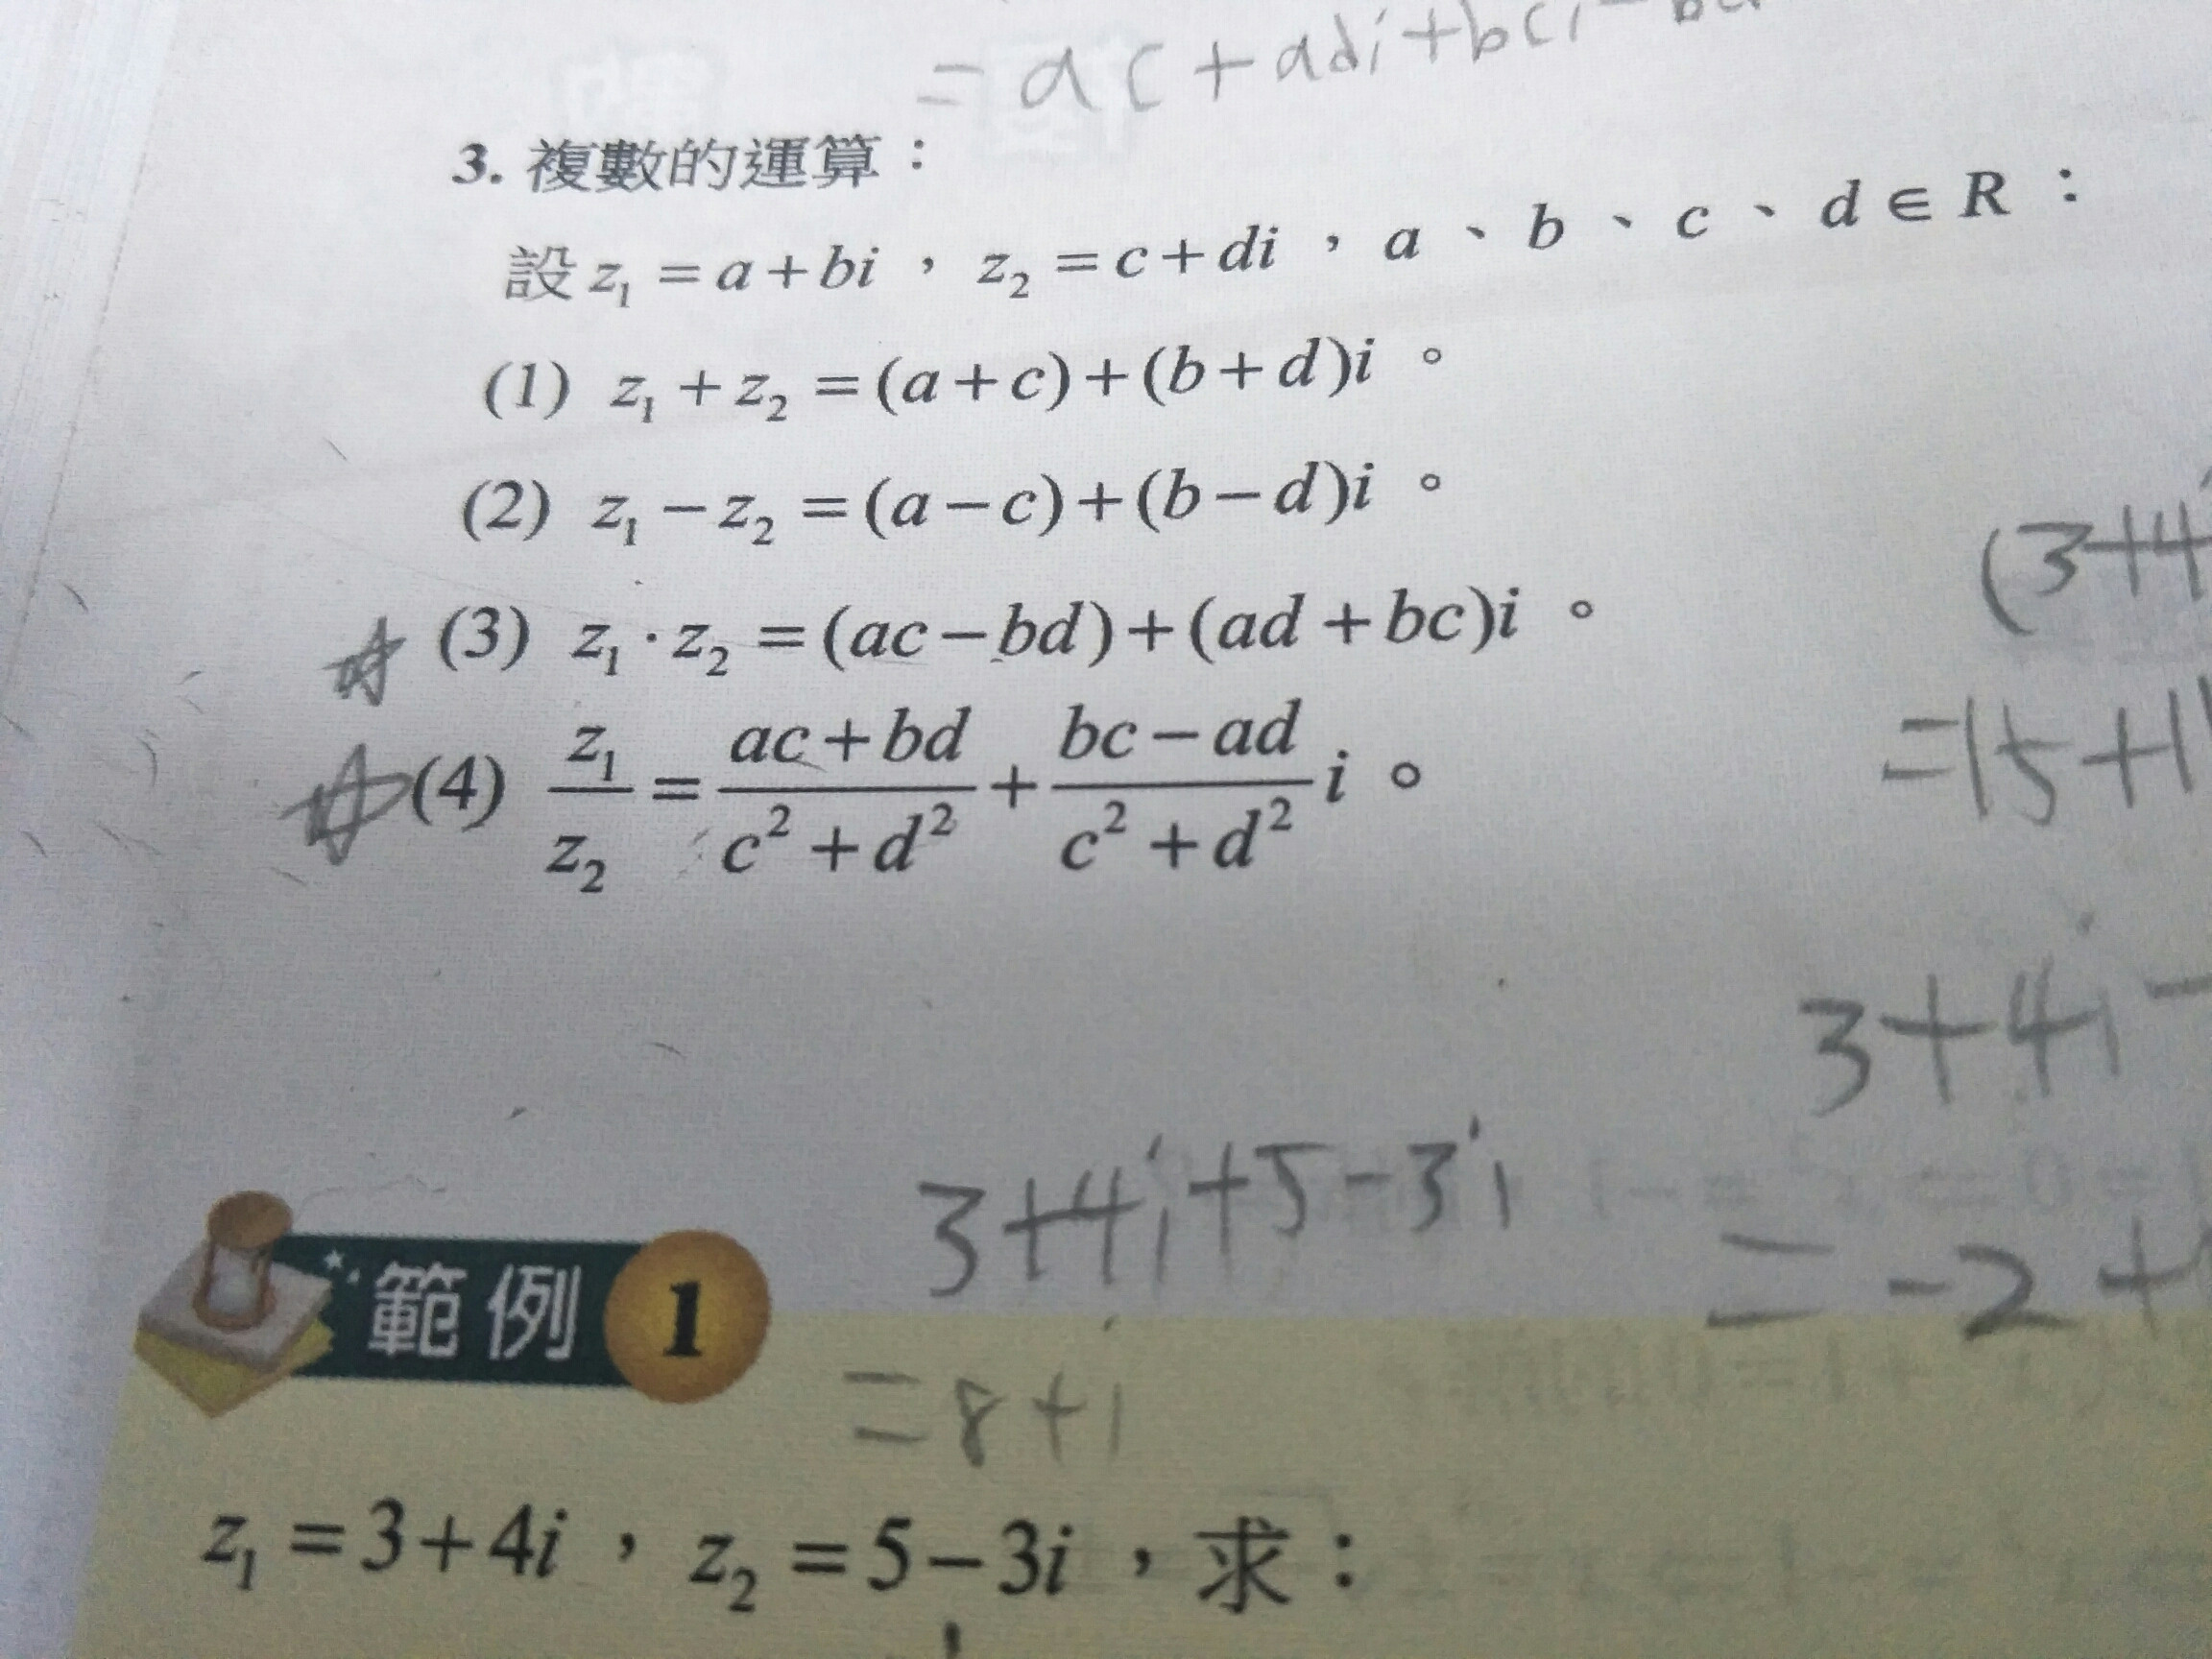 = ac + adi + bci -
3. 複數的運算：
設 z₁ = a + bi ， z₂ = c + di ， a 、 b 、 c 、 d ∈ R ：
(1) z₁ + z₂ = (a + c) + (b + d)i 。
(2) z₁ − z₂ = (a − c) + (b − d)i 。
(3+4
(3) z₁ · z₂ = (ac − bd) + (ad + bc)i 。
=15+11
(4) z₁/z₂ = (ac + bd)/(c² + d²) + (bc − ad)/(c² + d²) i 。
3+4i-
3+4i+5-3i
=-2+
範例 1
=8+i
z₁ = 3 + 4i ， z₂ = 5 − 3i ，求：